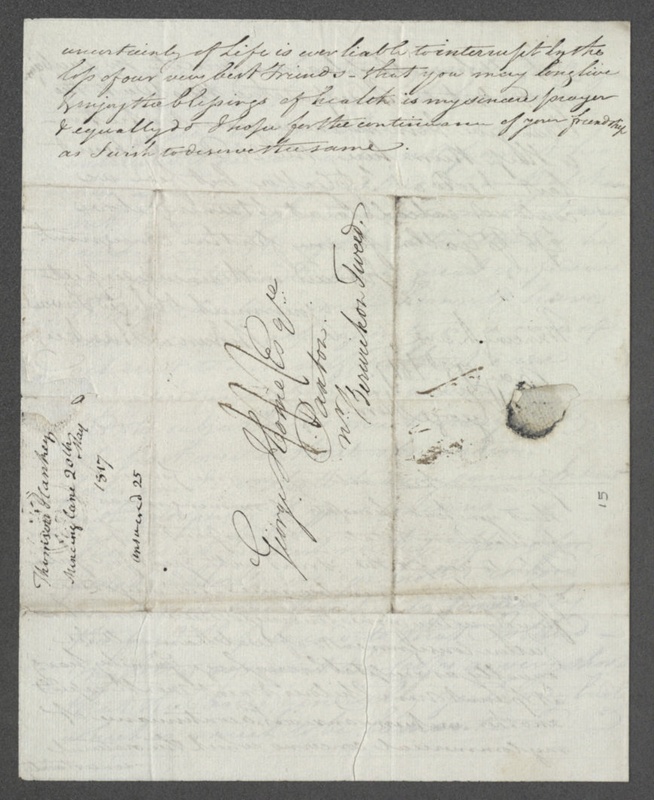 uncertainty of Life is ever liable to interrupt by the
loss of our very best Friends - that you may long live
& enjoy the blessings of health is my sincere prayer
& equally do I hope for the continuance of your friendship
as I wish to deserve the same.
George Home Esqre
Paxton
nr. Berwick on Tweed.
Thomson Hankey
Mincing Lane 20th
May
1817
answered 25
15